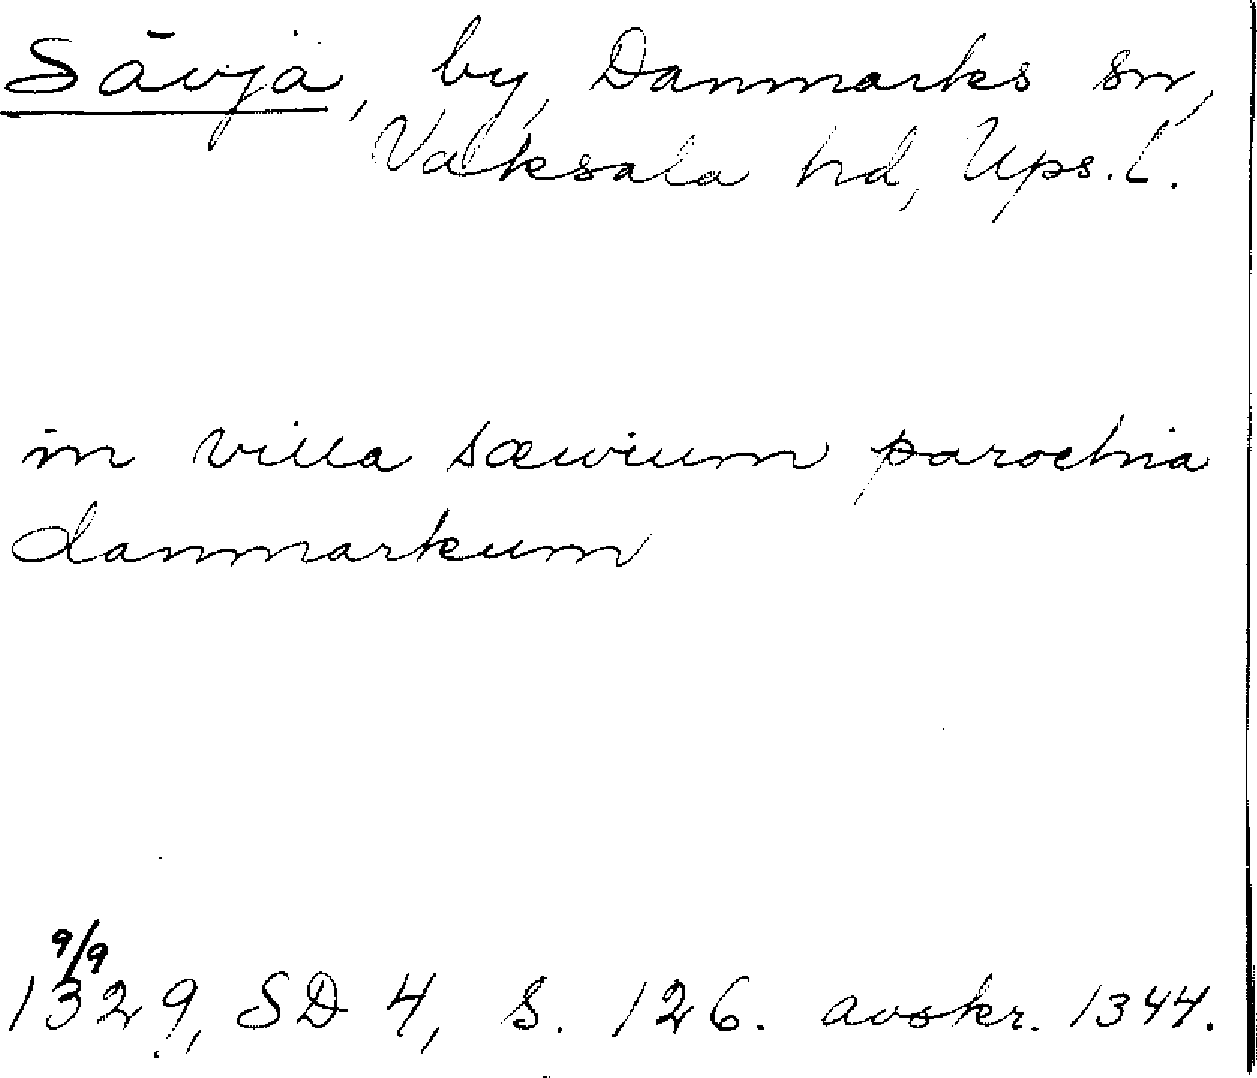 Sävja, by, Danmarks sn,
Vaksala hd, Ups. l.
in villa sæwium parochia
danmarkum
9/9
1329, SD 4, s. 126. avskr. 1344.